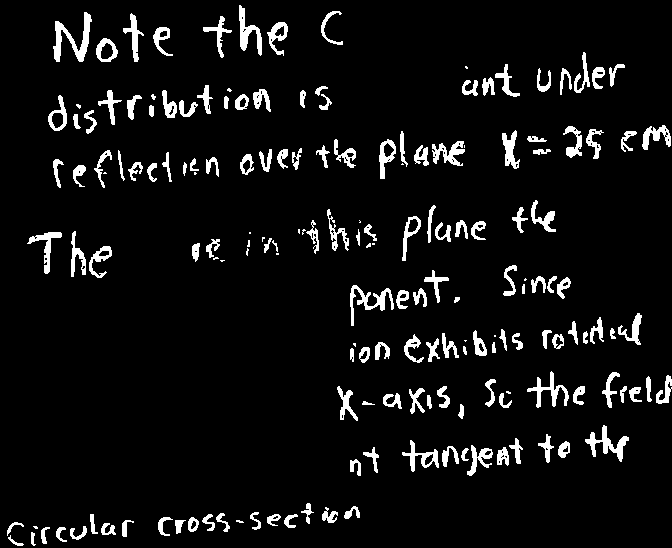 Note the C
distribution is ant under
reflection over the plane X = 25 cm
The re in this plane the
ponent. Since
ion exhibits rotational
X-axis, so the field
nt tangent to the
Circular cross-section